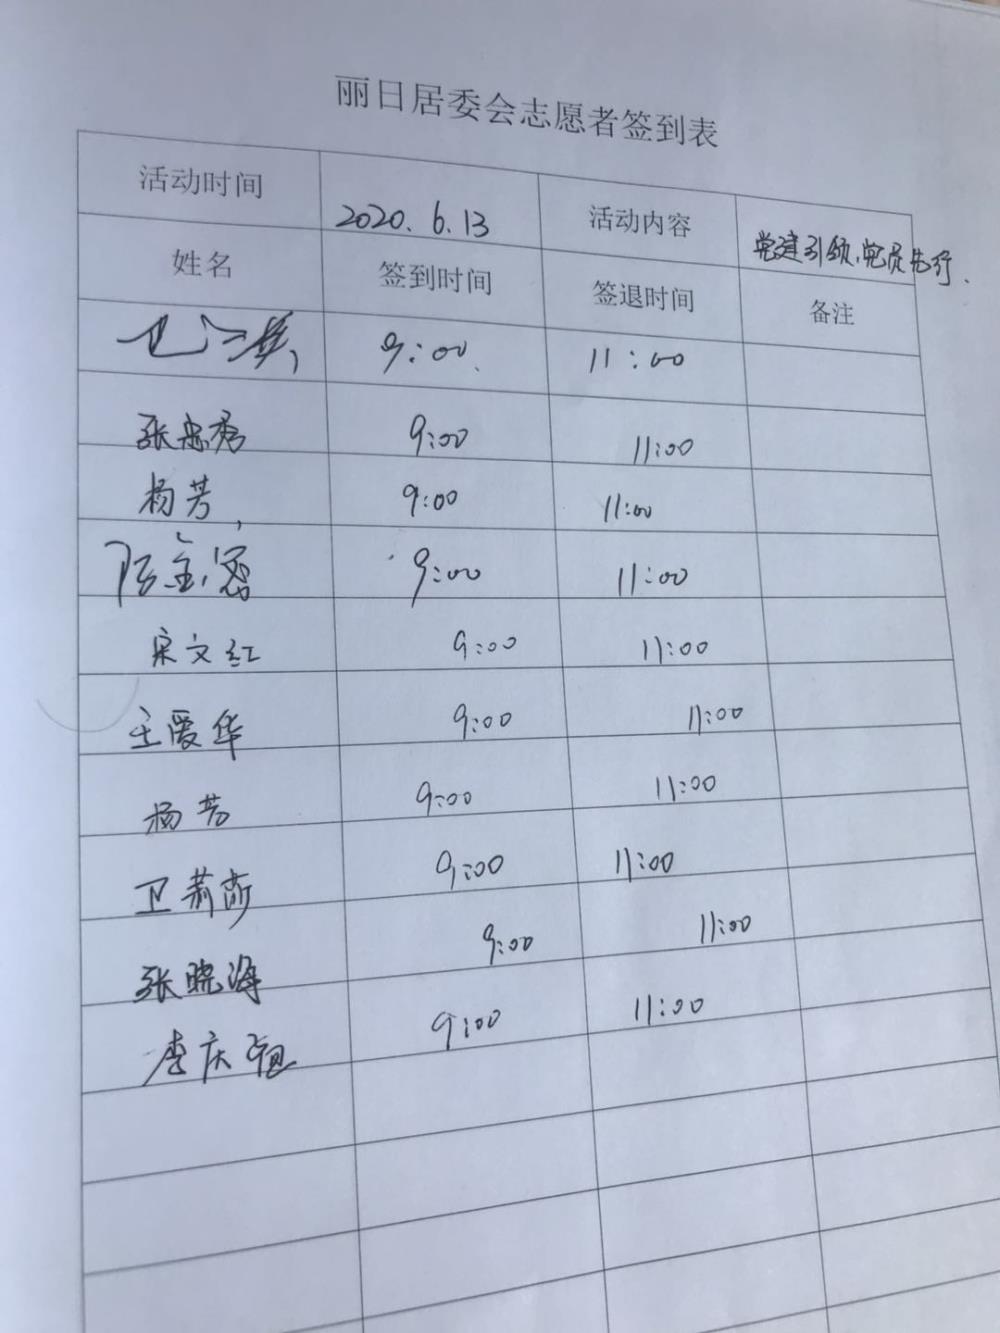 丽日居委会志愿者签到表
活动时间 2020.6.13 活动内容 党建引领,党员先行.
姓名 签到时间 签退时间 备注
9:00 11:00
张忠秀 9:00 11:00
杨芳 9:00 11:00
9:00 11:00
宋文红 9:00 11:00
王爱华 9:00 11:00
杨芳 9:00 11:00
卫 9:00 11:00
张晓海 9:00 11:00
李庆 9:00 11:00